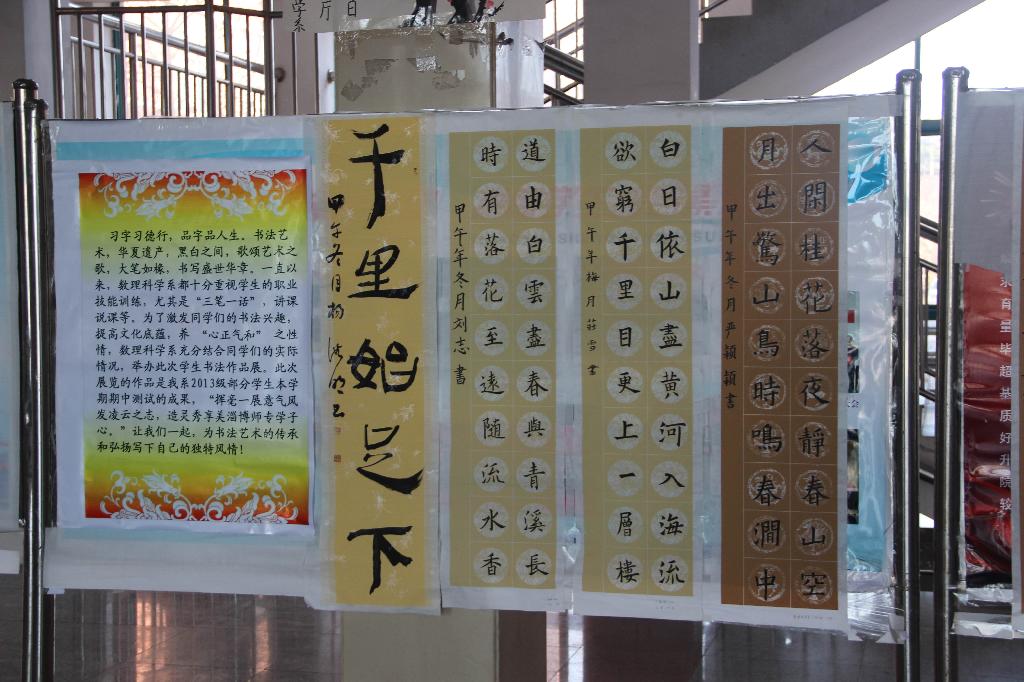 习字习德行，品字品人生。书法艺
术，华夏遗产，黑白之间，歌颂艺术之
歌，大笔如椽，书写盛世华章。一直以
来，数理科学系都十分重视学生的职业
技能训练，尤其是“三笔一话”，讲课
说课等。为了激发同学们的书法兴趣，
提高文化底蕴，养 “心正气和” 之性
情，数理科学系充分结合同学们的实际
情况，举办此次学生书法作品展。此次
展览的作品是我系2013级部分学生本学
期期中测试的成果，“挥毫一展意气风
发凌云之志，造灵秀享美淄博师专学子
心。”让我们一起，为书法艺术的传承
和弘扬写下自己的独特风情！
千里始足下
甲午冬月杨
道由白雲盡春與青溪長
時有落花至遠随流水香
甲午年冬月刘志書
白日依山盡黄河入海流
欲窮千里目更上一層樓
甲午年梅月莊雪書
人閑桂花落夜靜春山空
月出驚山鳥時鳴春澗中
甲午年冬月严颖颖書